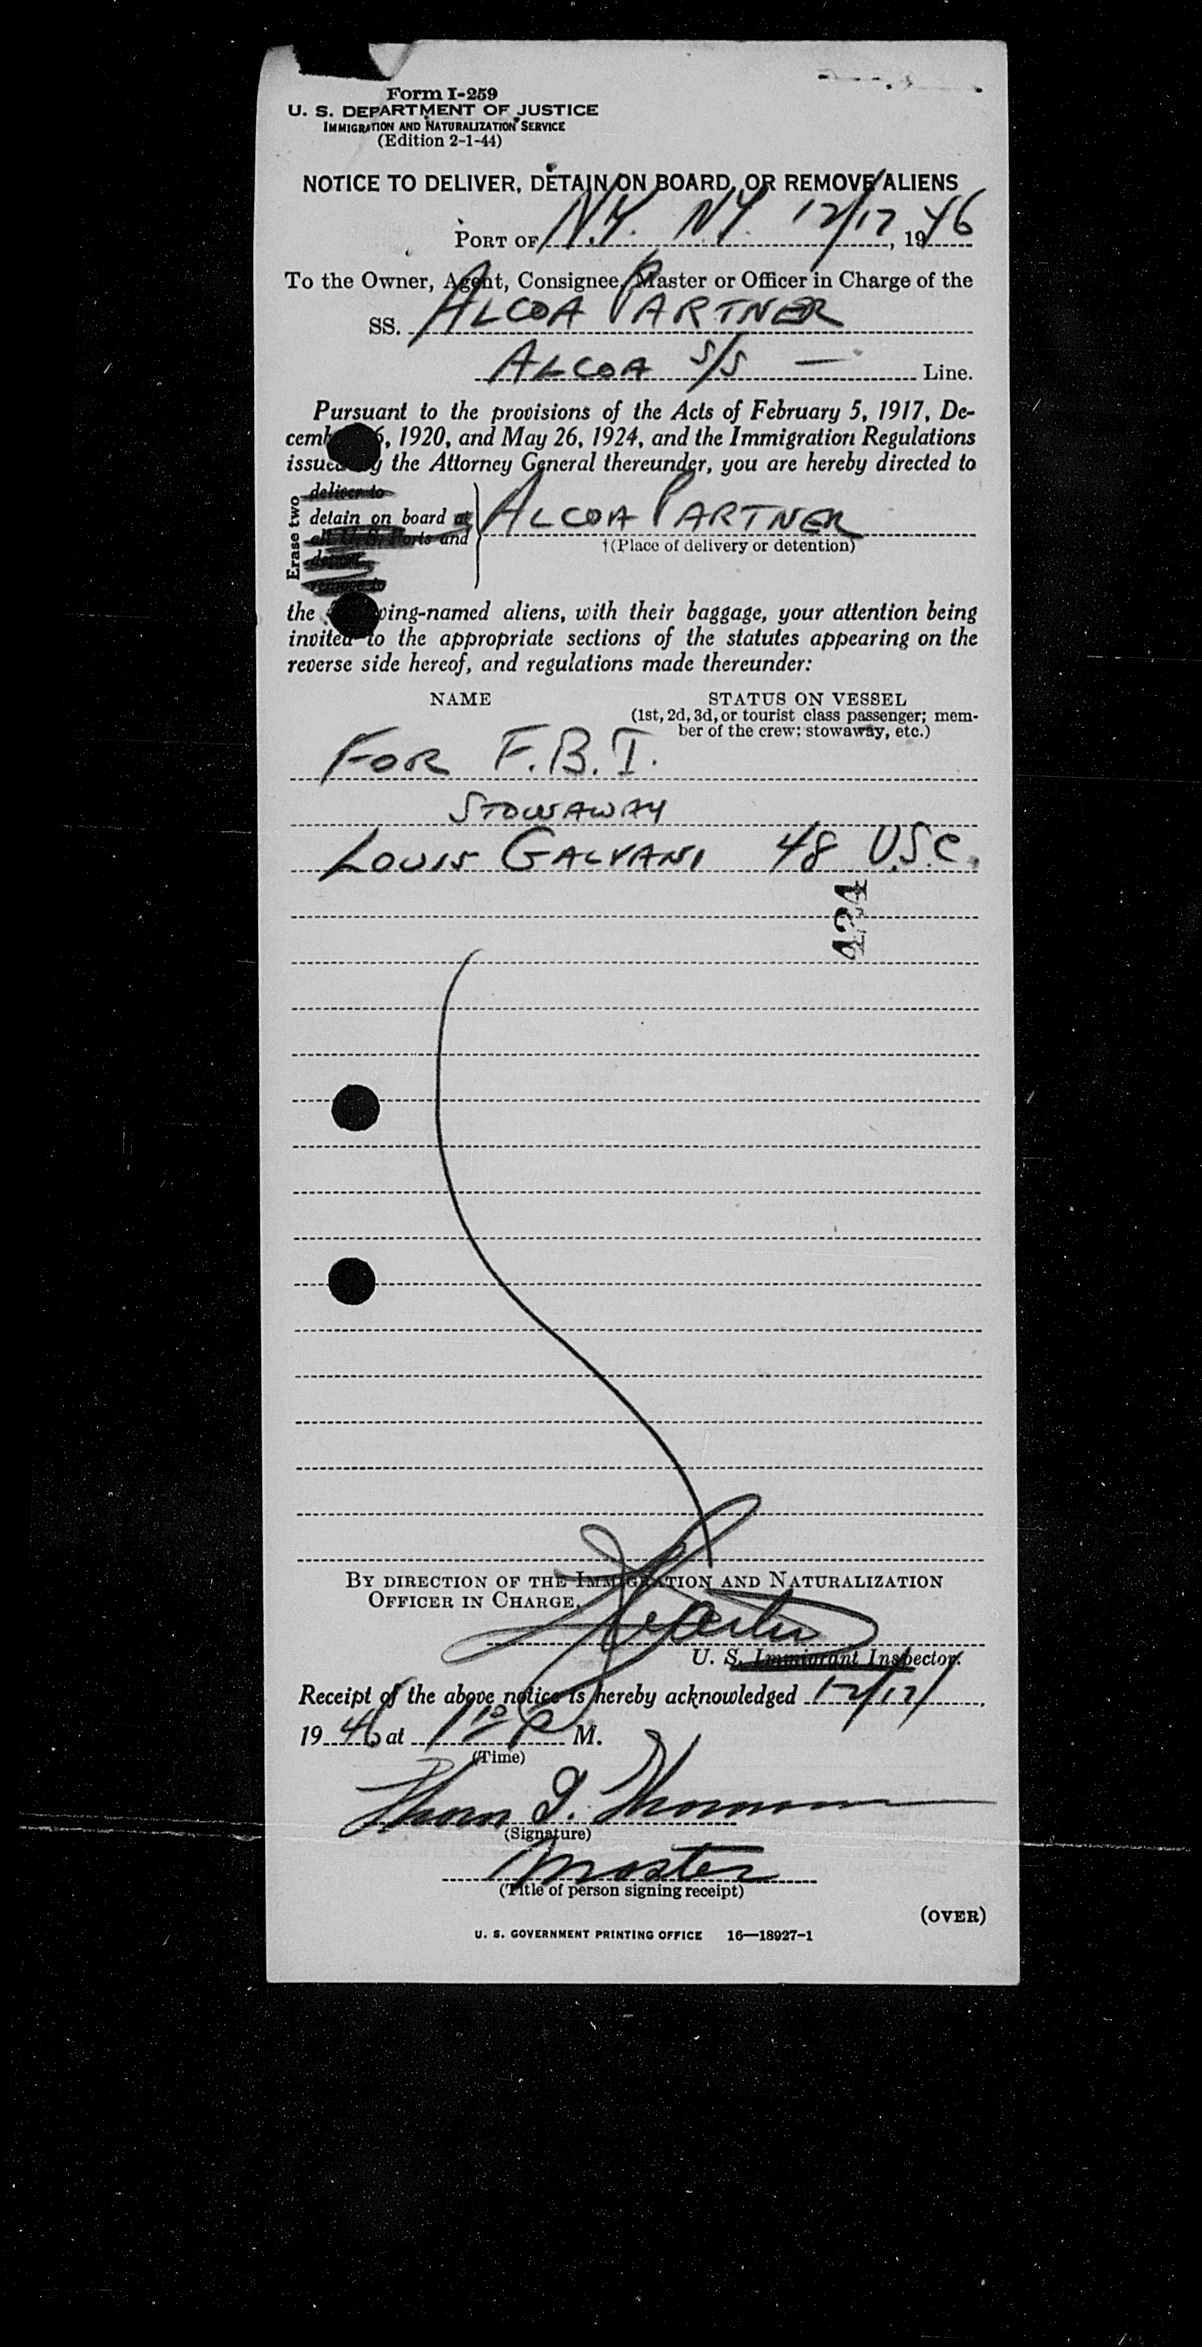 Form I-259
U. S. DEPARTMENT OF JUSTICE
IMMIGRATION AND NATURALIZATION SERVICE
(Edition 2-1-44)
NOTICE TO DELIVER, DETAIN ON BOARD, OR REMOVE ALIENS
PORT OF N.Y. N.Y. 12/17, 1946
To the Owner, Agent, Consignee, Master or Officer in Charge of the
SS. ALCOA PARTNER
ALCOA S/S — Line.
Pursuant to the provisions of the Acts of February 5, 1917, De-
cemb 6, 1920, and May 26, 1924, and the Immigration Regulations
issued by the Attorney General thereunder, you are hereby directed to
Erase two
deliver to
detain on board at
all U. S. Ports and
remove to
ALCOA PARTNER
†(Place of delivery or detention)
the wing-named aliens, with their baggage, your attention being
invited to the appropriate sections of the statutes appearing on the
reverse side hereof, and regulations made thereunder:
NAME STATUS ON VESSEL
(1st, 2d, 3d, or tourist class passenger; mem-
ber of the crew; stowaway, etc.)
FOR F.B.I.
STOWAWAY
LOUIS GALVANI 48 U.S.C.
424
BY DIRECTION OF THE IMMIGRATION AND NATURALIZATION
OFFICER IN CHARGE.
U. S. Immigrant Inspector.
Receipt of the above notice is hereby acknowledged 12/17/
1946 at 1 10 P M.
(Time)
(Signature)
Master
(Title of person signing receipt)
(OVER)
U. S. GOVERNMENT PRINTING OFFICE 16—18927-1